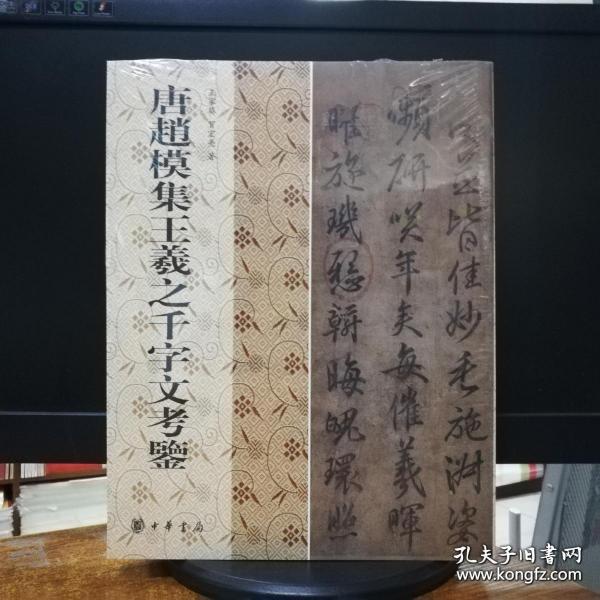 唐趙模集王羲之千字文考鑒
著
中華書局
並皆佳妙毛施淑姿
嚬研咲年矢每催羲暉
睢旋璣懸斡晦魄環照
孔夫子旧书网
www.kongfz.com